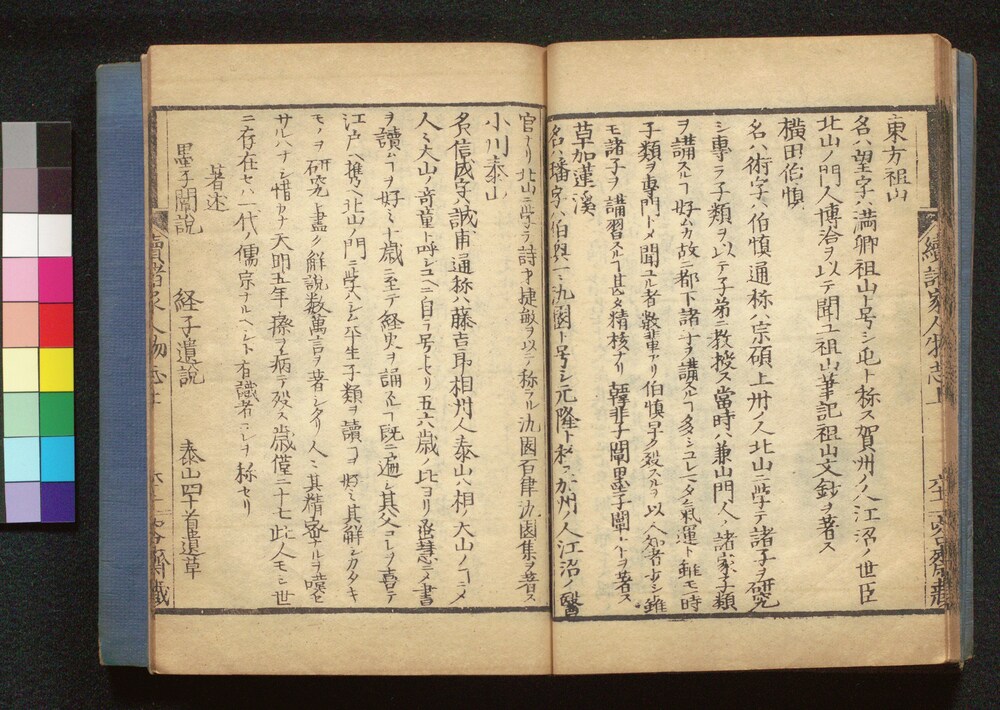 東方祖山
名ハ望字ハ滿卿祖山ト号シ屯ト称ス賀州ノ人江沼ノ世臣
北山ノ門人博洽ヲ以テ聞ユ祖山筆記祖山文鈔ヲ著ス
橫田伯慎
名ハ術字ハ伯慎通称ハ宗碩上州ノ人北山ニ学テ諸子ヲ研究
シ專ラ子類ヲ以テ子弟ニ教授ス當時ハ兼山門人ノ諸家子類
ヲ講スルヿ好ムカ故ニ都下諸子ヲ講スルヿ多シユレマタ氣運ト雖モ一時
子類ヲ専門トメ聞ユル者数輩アリ伯慎早ク殁スルヲ以人知者少シ雖
モ諸子ヲ講習スルヿ甚タ精核ナリ韓非子闡墨子闡トヲ著ス
草加蓮溪
名ハ璠字ハ伯與一ニ氿圂ト号シ元隆ト称ス加州ノ人江沼ノ醫
續諸家人物志上
官ナリ北山ニ学ラ詩才捷敏ヲ以テ称ラル氿圂百律氿圂集ヲ著ス
小川泰山
名信成字ハ誠甫通称ハ藤吉郎相州人泰山ハ相ノ大山ノヿニメ
人ミ大山ノ奇童ト呼シユヘニ自ラ号トセリ五六歳ノ比ヨリ㥄慧ニメ書
ヲ讀ムヿヲ好ミ十歳ニ至テ経史ヲ誦スルヿ既ニ遍シ其父コレヲ喜テ
江戸ヘ携ヘ北山ノ門ニ学ハシム平生子類ヲ讀ムヿヲ好ミ其解シカタキ
モノヲ研究シ盡ク解説数萬言ヲ著シタリ人ミ其精密ナルヲ嘆セ
サルハナシ惜カナ天明五年瘵ヲ病テ殁ス歳僅ニ十七此人モシ世
ニ存在セハ一代ノ儒宗ナルヘシト有識者コレヲ称セリ
著述
墨子闡説 経子遺説 泰山四十首遺草
續諸家人物志上